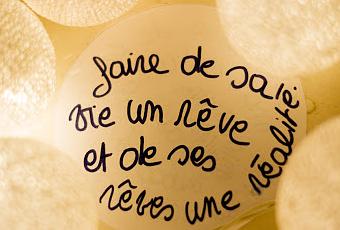 faire de sa
vie un rêve
et de ses
rêves une réalité.